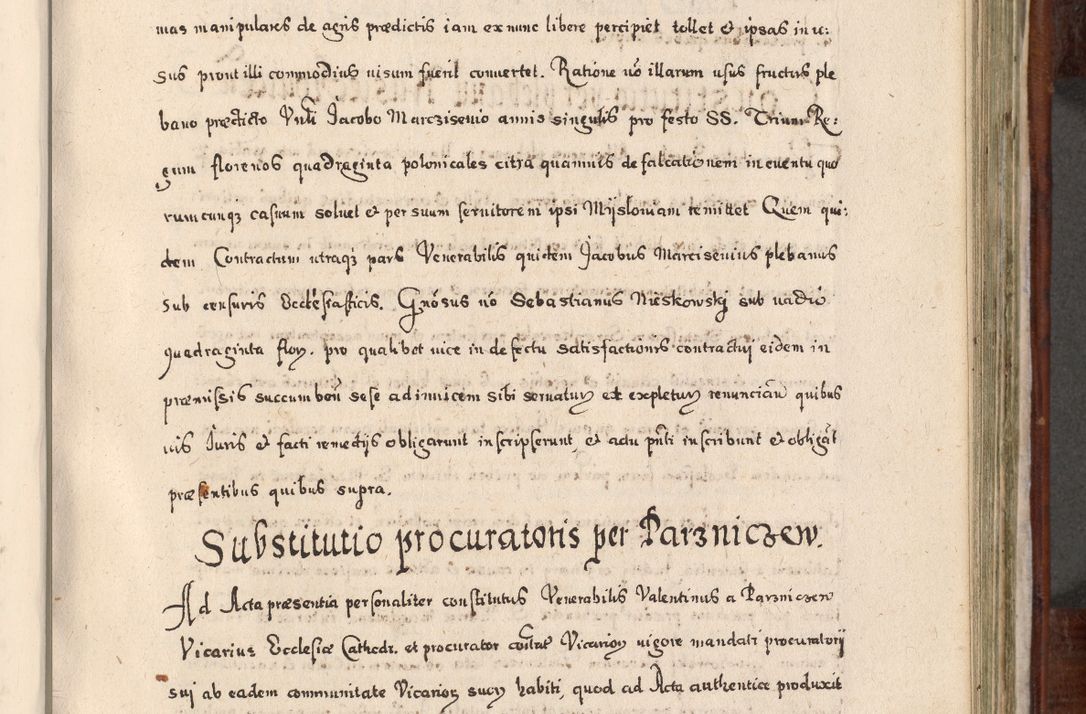 mas manipulares de agris prædictis iam ex nunc libere percipiet tollet et ipsas in u:
sus prout illi commodius uisum fuerit conuertet. Ratione uo illarum usus fructus ple
bano prædicto Vnti Jacobo Marczisenio annis singulis pro festo SS. Trium Re:
gum florenos quadraginta polonicales citra quamuis defalcationem in euentu quo
rumcunqz casuum soluet et per suum seruitorem ipsi Myslouiam remittet Quem qui:
dem Contractum utraqz pars Venerabilis quidem Jacobus Marcisenius plebanus
sub censuris Ecclesiasticis. Gnosus uo Sebastianus Mieskowskj sub uadio
quadraginta flor. pro qualibet uice in defectu satisfactionis contractui eidem in
præmissis succumben sese adinuicem sibi seruatur et expletur renuncian quibus
uis Juris et facti remedijs obligarunt inscripserunt, et adu pnti inscribunt et obligat
præsentibus quibus supra.
Substitutio procuratoris per Parzniczew.
Ad Acta præsentia personaliter constitutus Venerabilis Valentinus a Parzniczew
Vicarius Ecclesiæ Cathedr. et procurator coitatis Vicarior uigore mandati procuratorij
sui ab eadem communitate Vicarior suor habiti, quod ad Acta authentice produxit